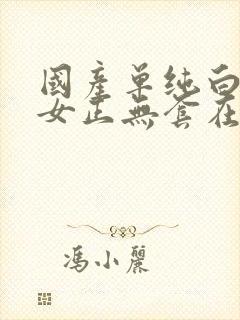 國產單純白
女正無套在
馮小麗